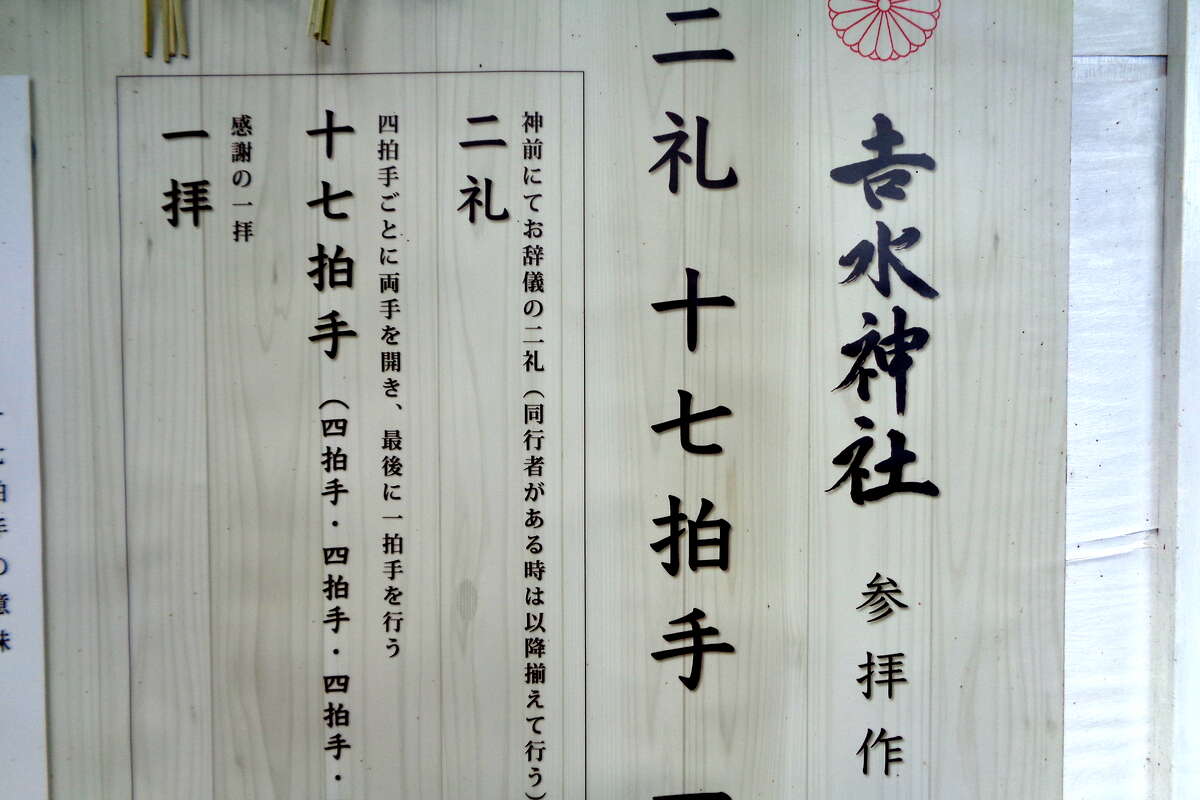 𠮷水神社 参拝作
二礼 十七拍手
神前にてお辞儀の二礼（同行者がある時は以降揃えて行う）
二礼
四拍手ごとに両手を開き、最後に一拍手を行う
十七拍手（四拍手・四拍手・四拍手・
感謝の一拝
一拝
七拍手の意味